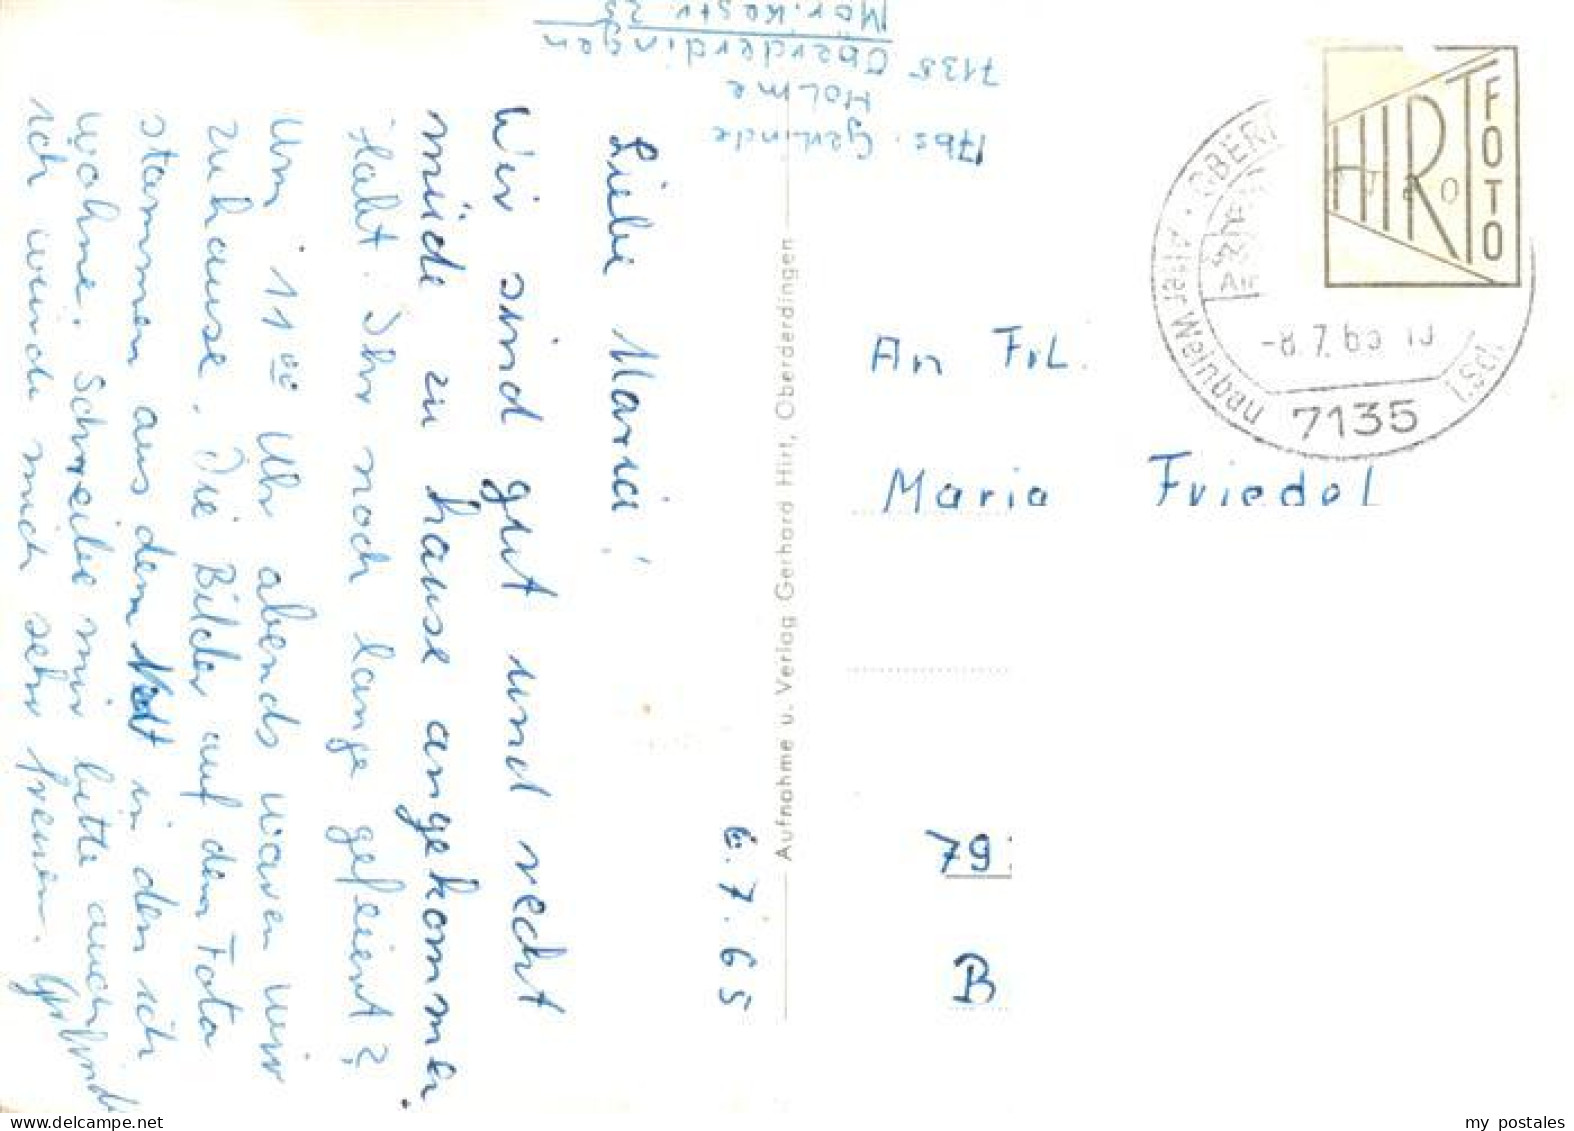 Abs. Gerlinde
Holme
7135 Oberderdingen
Mörikestr.
6.7.65
Liebe Maria!
Wir sind gut und recht
müde zu hause angekommen.
Habt Ihr noch lange gefeiert?
Um 11 00 Uhr abends waren wir
zuhause. Die Bilder auf dem Foto
stammen aus dem in dem ich
wohne. Schreibe mir bitte auch
ich würde mich sehr freuen. Gerlinde
Aufnahme u. Verlag Gerhard Hirt, Oberderdingen
HIRT
FOTO
-8.7.65
7135
Alter Weinbau
An Frl.
Maria Friedel
79
B
my postales